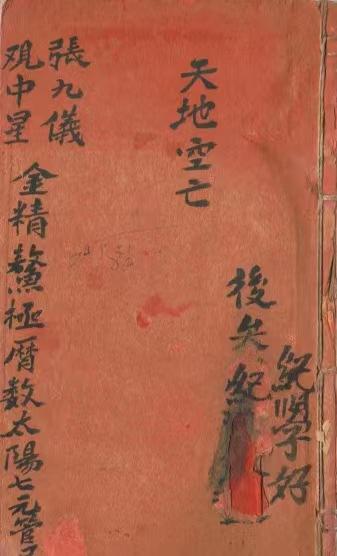 紀學好
後失紀
天地空亡
張九儀
覌中星
金精鰲極暦数太陽七元管